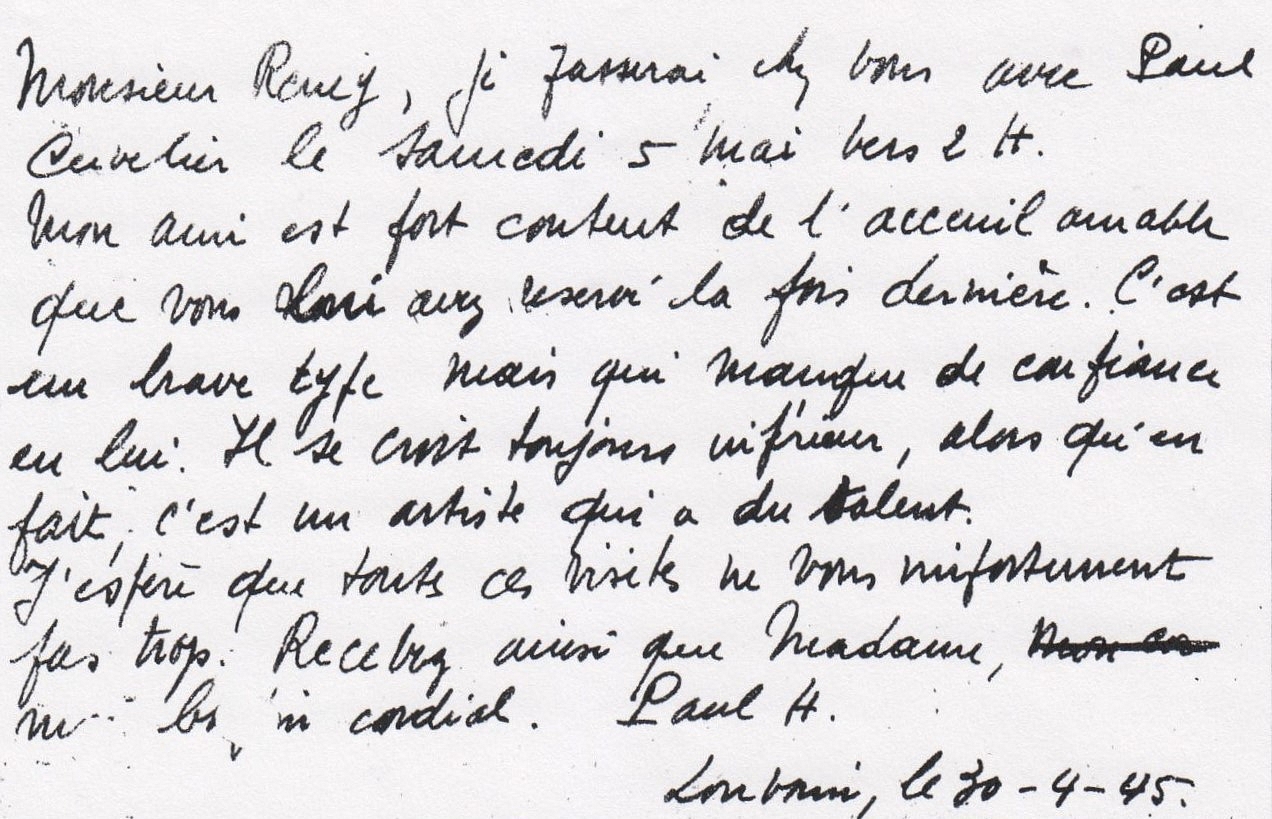 Monsieur Remy, je passerai chez vous avec Paul
Cuvelier le Samedi 5 Mai vers 2 H.
Mon ami est fort content de l'acceuil aimable
que vous lui avez reservé la fois dernière. C'est
un brave type mais qui manque de confiance
en lui. Il se croit toujours inférieur, alors qu'en
fait, c'est un artiste qui a du talent.
J'espère que toutes ces visites ne vous importunent
pas trop. Recevez ainsi que Madame,
cordial. Paul H.
Louvain, le 30-4-45.